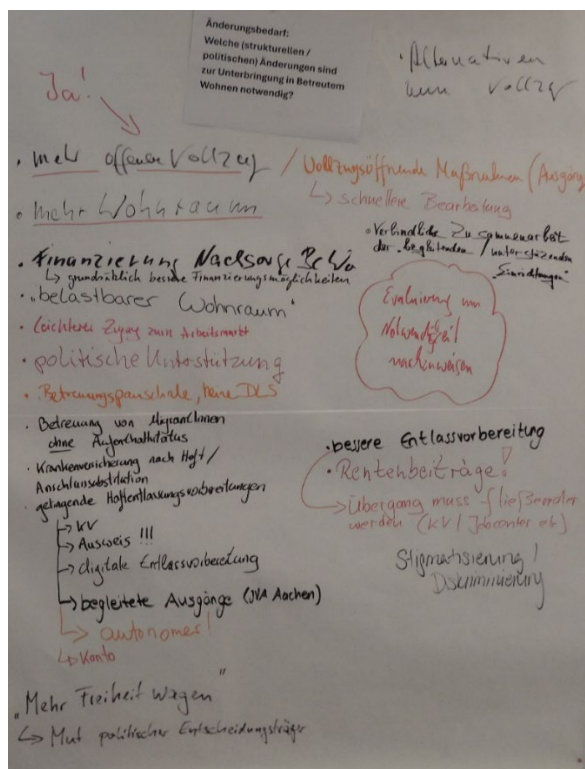 Änderungsbedarf:
Welche (strukturellen /
politischen) Änderungen sind
zur Unterbringung in Betreutem
Wohnen notwendig?
· Alternativen
zum Vollzug
Ja!
· mehr offener Vollzug / Vollzugsöffnende Maßnahmen (Ausgänge
↳ schnellere Bearbeitung
· mehr Wohnraum
· Verbindliche Zusammenarbeit
der "begleitenden / unterstützenden
Einrichtungen"
· Finanzierung Nachsorge BeWo
↳ grundsätzlich bessere Finanzierungsmöglichkeiten
· „belastbarer Wohnraum"
Evaluierung um
Notwendigkeit
nachzuweisen
· leichterer Zugang zum Arbeitsmarkt
· politische Unterstützung
· Betreuungspauschale, keine DLS
· Betreuung von MigrantInnen
ohne Aufenthaltstatus
· Krankenversicherung nach Haft /
Anschlusssubstitution
· gelingende Haftentlassungsvorbereitungen
↳ KV
↳ Ausweis !!!
↳ digitale Entlassvorbereitung
↳ begleitete Ausgänge (JVA Aachen)
↳ autonomer!
↳ Konto
· bessere Entlassvorbereitung
· Rentenbeiträge!
→ Übergang muss fließender
werden (KV / Jobcenter etc)
Stigmatisierung /
Diskriminierung
„Mehr Freiheit wagen"
↳ Mut politischer Entscheidungsträger